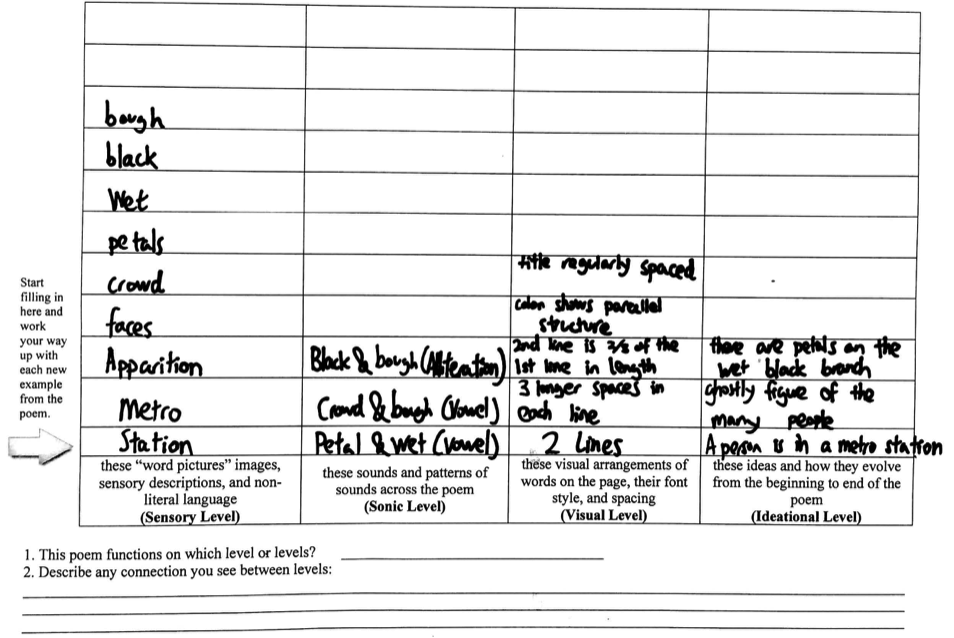 bough
black
Wet
petals
title regularly spaced
crowd
colon shows parallel
structure
faces
2nd line is 2/3 of the
1st line in length
there are petals on the
wet black branch
Apparition
Black & bough (Alliteration)
3 longer spaces in
each line
ghostly figue of the
many people
Metro
Crowd & bough (Vowel)
Station
Petal & wet (vowel)
2 Lines
A person is in a metro station
Start
filling in
here and
work
your way
up with
each new
example
from the
poem.
these “word pictures” images,
sensory descriptions, and non-
literal language
(Sensory Level)
these sounds and patterns of
sounds across the poem
(Sonic Level)
these visual arrangements of
words on the page, their font
style, and spacing
(Visual Level)
these ideas and how they evolve
from the beginning to end of the
poem
(Ideational Level)
1. This poem functions on which level or levels?
2. Describe any connection you see between levels: